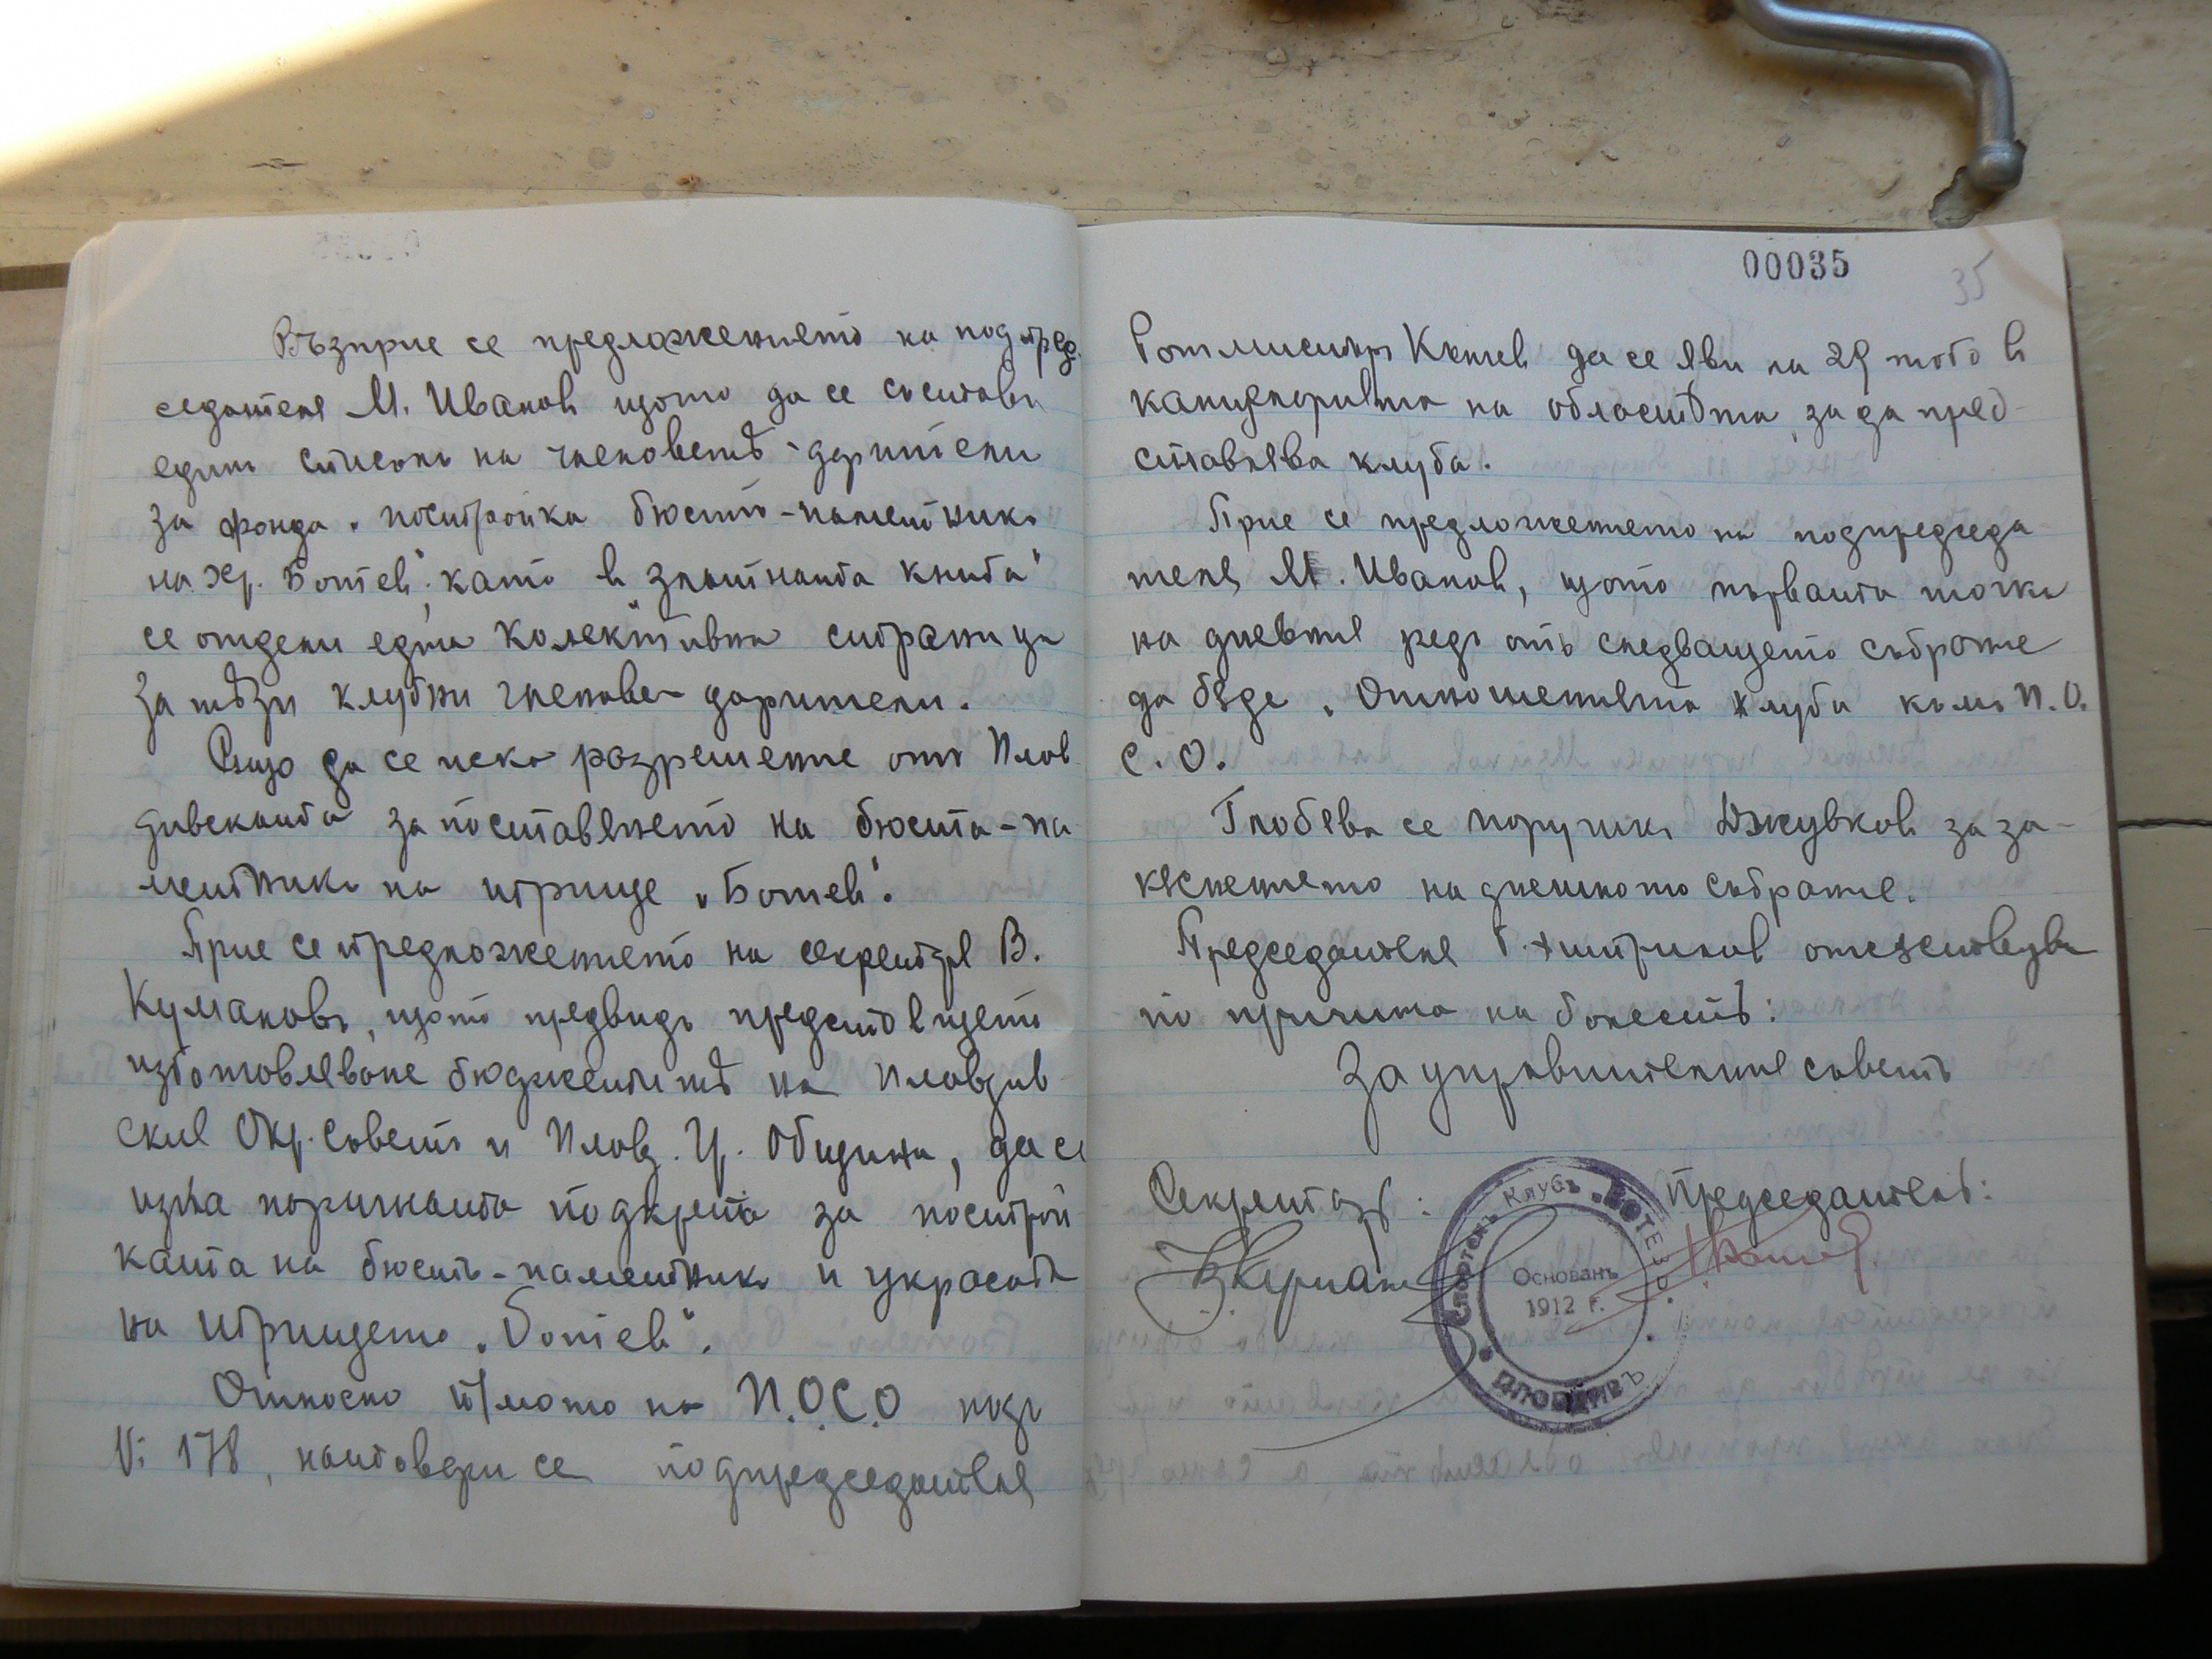 Възприе се предложението на подпред.
седателя М. Иванов щото да се състави
един списък на членоветѣ-дарители
за фонда „постройка бюстъ-паметникъ
на Хр. Ботев", като в „златната книга"
се отдели една колективна страница
за тѣзи клубни членове-дарители.
Също да се иска разрешение отъ Плов
дивската за поставянето на бюста-па
метникъ на игрище „Ботев".
Прие се предложението на секретаря В.
Кумановъ, щото предвидъ предстоящето
изготовляване бюджетитѣ на Пловдив
ския Окр. съветъ и Пловд. Гр. Община, да се
иска паричната подкрепа за построй
ката на бюстъ-паметникъ и украсата
на игрището „Ботев".
Относно п/мото на П.О.С.О подъ
№ 178, натовари се подпредседателя
00035
35
Ротмистръ Кънев да се яви на 29 того в
канцеларията на областьта, за да пред-
ставлява клуба.
Прие се предложението на подпредседа
теля М. Иванов, щото първата точка
на дневния редъ отъ следващето събрание
да бѫде „Отношенията клуба къмъ П.О.
С.О.
Глобява се поручикъ Джувков за за-
къснението на днешното събрание.
Председателя Г. отсѫтствува
по причина на болесть:
За управителния съветъ
Секретарь: Председатель:
Спортенъ Клубъ „БОТЕВЪ"
Основанъ
1912 г.
ПЛОВДИВЪ